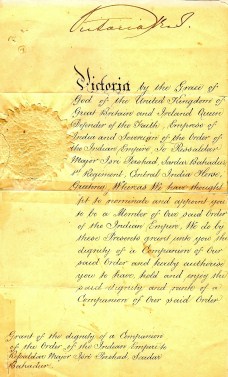 Victoria R.I.
Victoria by the Grace of
God of the United Kingdom of
Great Britain and Ireland Queen
Defender of the Faith, Empress of
India and Sovereign of the Order of
the Indian Empire. To Ressaldar
Major Isri Parshad, Sardar Bahadur
1st Regiment, Central India Horse,
Greeting, Whereas We have thought
fit to nominate and appoint you
to be a Member of Our said Order
of the Indian Empire, We do by
these Presents grant unto you the
dignity of a Companion of Our
said Order and hereby authorise
you to have, hold and enjoy the
said dignity and rank of a
Companion of Our said Order
Grant of the dignity of a Companion
of the Order of the Indian Empire to
Major Isri Parshad, Sardar
Bahadur